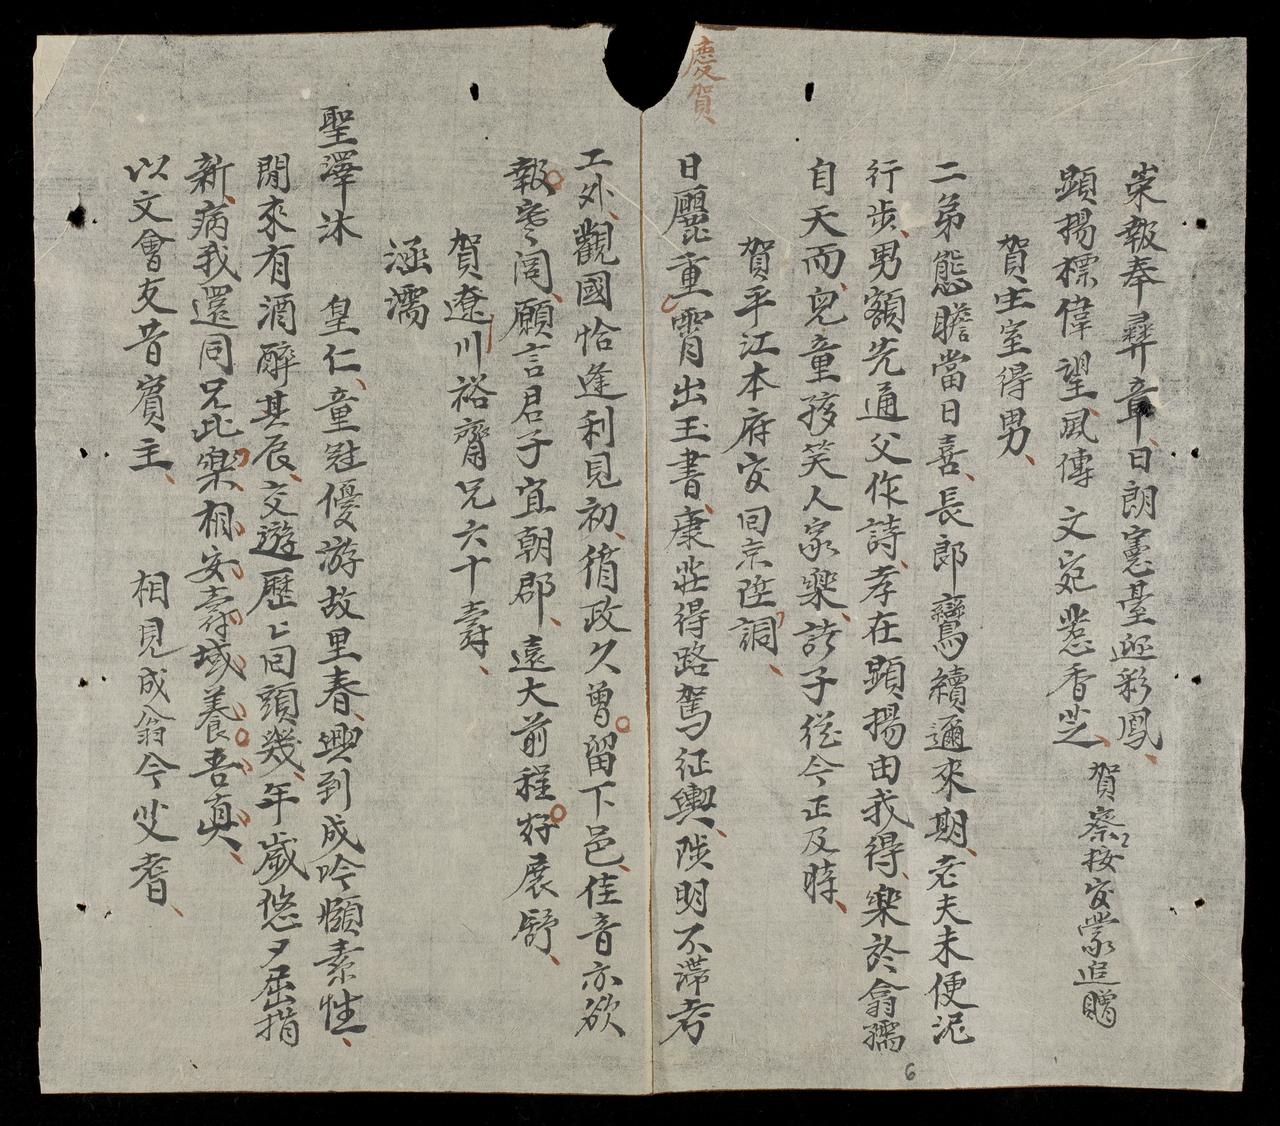 慶賀
崇報奉彛章日朗憲臺迎彩鳳
顕揚標偉望風傳 文宛惹香芝 賀察按官蒙追贈
賀室得男
二弟態瞻當日喜長郎鸞續邇來期老夫未便泥
行步男額先通父作詩孝在顕揚由我得樂於翕孺
自天而兒童孩笑人家樂許子從今正及時
賀平江本府官回京陞詞
日麗重霄出玉書康莊得路駕征輿陟明不滯考
工外觀國恰逢利見初循政久曾留下邑佳音亦欲
報閭願言君子宜朝郡遠大前程好展舒
賀遼川裕齋兄六十壽
涵濡
聖澤沐 皇仁童冠優游故里春興到成吟頤素性
閒來有酒醉其辰交遊歷上回頭幾年歲悠夕屈指
新病我還同兄此樂相安壽域養吾真
以文會友昔賓主 相見成翁今叟耆
6